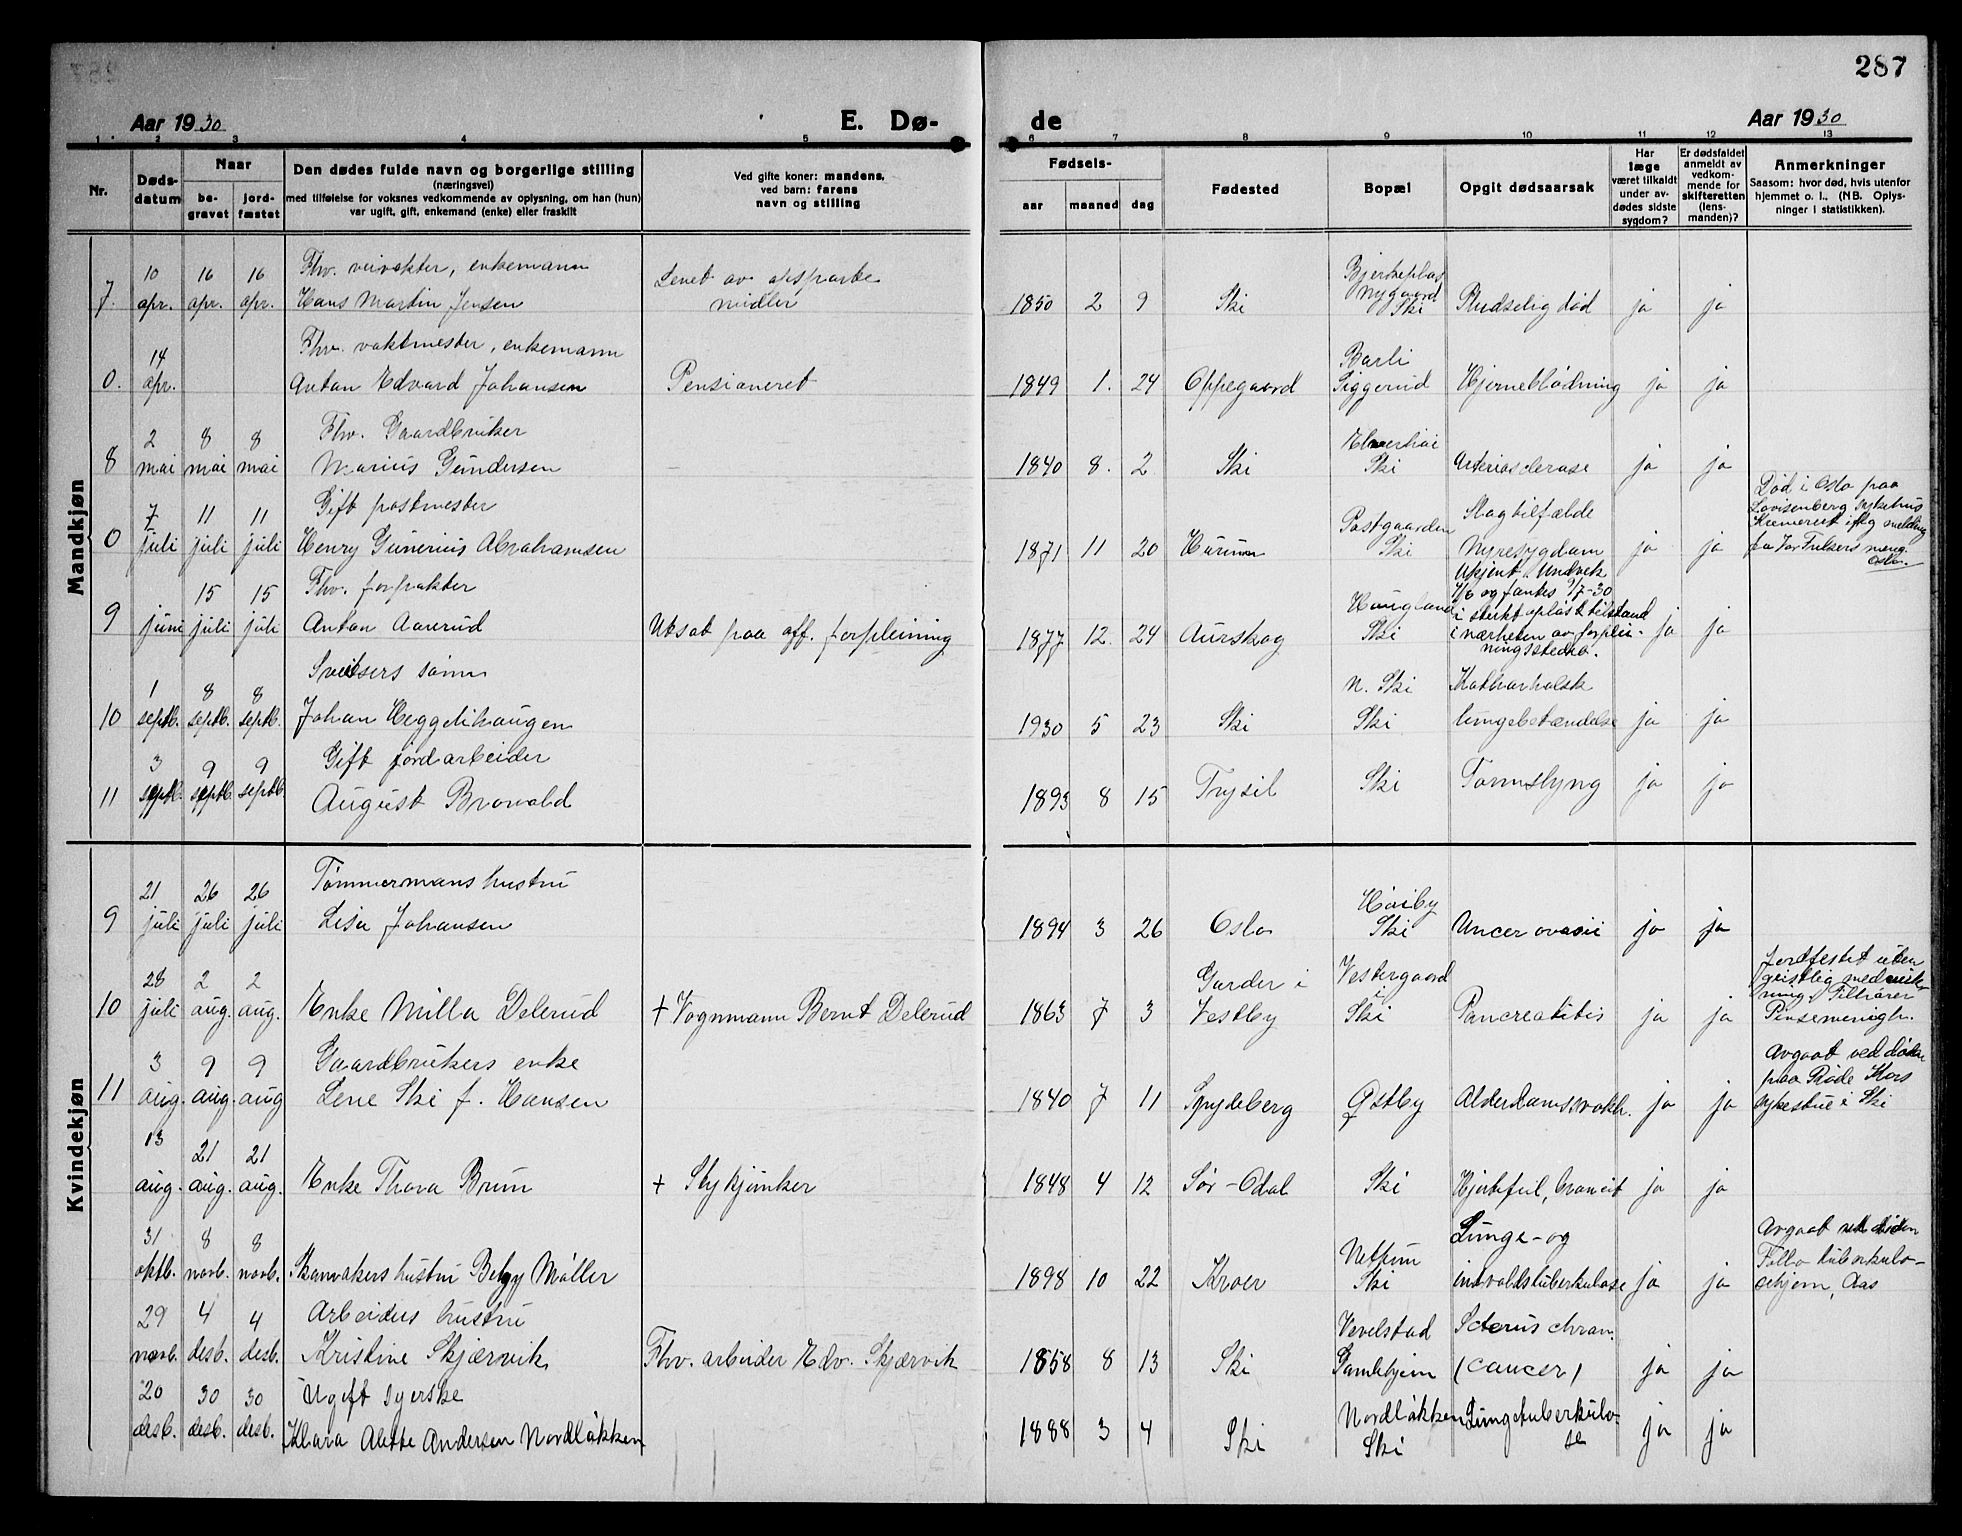 287
Aar 1930
E. Dø-
de
Aar 1930
1 2 3 4 5 6 7 8 9 10 11 12 13
Nr.
Døds-
datum
Naar
be-
gravet
jord-
fæstet
Den dødes fulde navn og borgerlige stilling
(næringsvei)
med tilføielse for voksnes vedkommende av oplysning, om han (hun)
var ugift, gift, enkemand (enke) eller fraskilt
Ved gifte koner: mandens,
ved barn: farens
navn og stilling
Fødsels-
aar maaned dag
Fødested
Bopæl
Opgit dødsaarsak
Har
læge
været tilkaldt
under av-
dødes sidste
sygdom?
Er dødsfaldet
anmeldt av
vedkom-
mende for
skifteretten
(lens-
manden)?
Anmerkninger
Saasom: hvor død, hvis utenfor
hjemmet o. l.. (NB. Oplys-
ninger i statistikken).
Mandkjøn
10 16 16 Fhv. veivokter, enkemann Levet av opsparte Bjerkeplas
Nygaard
7. apr. apr. apr. Hans Martin Jensen midler 1850 2 9 Ski Ski Pludselig død ja ja
14 Fhv. vaktmester, enkemann Barli
0. apr. Anton Edvard Johansen Pensioneret 1849 1. 24 Oppegaard Siggerud Hjerneblødning ja ja
2 8 8 Fhv. Gaardbruker
8 mai mai mai Marius Gundersen – 1840 8. 2 Ski Ski Arteriosclerose ja ja
7 11 11 Gift postmester Postgaarden Slagtilfælde
0 juli juli juli Henry Gunerius Abrahamsen 1871 11 20 Hurum Ski Nyresygdom ja ja
Død i Oslo paa
Lovisenberg sykehus
Kremeret iflg melding
fra Vor Frelsers meng.
Oslo.
15 15 Fhv. forpakter
9 juni juli juli Anton Aarerud Utsat paa off. forpleining 1877 12. 24 Aurskog Haugland
Ski
Ukjent. Undvek
4/6 og fantes 9/7-30
i sterkt opløst tilstand
i nærheten av forplei-
ningsstedet.
ja ja
1 8 8 Sveitsers sønn N. Ski Katharhalsk
10 septb. septb. septb. Johan Heggelihaugen 1930 5 23 Ski Ski lungebetændelse ja ja
3 9 9 Gift jordarbeider
11 septb. septb. septb. August Brovold 1893 8 15 Trysil Ski Tarmslyng ja ja
Kvindekjøn
21 26 26 Tømmermans hustru Høiby
9 juli juli juli Lisa Johansen 1894 3 26 Oslo Ski ja ja
28 2 2 Garder i Vestergaard
i
10 juli aug. aug. Enke Milla Delerud + Vognmann Bernt Delerud 1863 7 3 Vestby Ski Pancreatitis ja ja
Jordfestet uten
geistlig medvirk-
ning. Tilhører
Pinsemenigh.
3 9 9 Gaardbrukers enke
11 aug. aug. aug Lene Ski f. Hansen 1840 7 11 Spydeberg Østby Alderdomssvakh. ja ja
Avgaat ved døden
paa Røde Kors
sykestue i Ski
13 21 21
aug. aug. aug. Enke Thora Brun + Stykjunker 1848 4 12 Sør-Odal Ski Hjertefeil, broncit ja ja
31 8 8 Lunge- og
oktb. novb. novb. Skomakers hustru Møller 1898 10 22 Kroer Ski ja ja
Avgaat ved døden
Follo tuberkulo-
sehjem, Aas
29 4 4 Arbeiders hustru Vevelstad Icterus chron.
novb. desb. desb. Kristine Skjærvik Fhv. arbeider Edv. Skjærvik 1858 8 13 Ski Gamlehjem (cancer) ja ja
20 30 30 Ugift syerske Nordløkken Lungetuberkulo-
desb. desb. desb. Klara Alette Andersen Nordløkken 1888 3 4 Ski Ski se ja ja